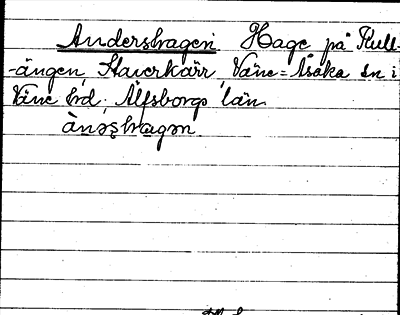 Andershagen Hage på Kull-
-ängen, Staverkärr, Väne=Åsaka sn i
Väne hd, Älfsborgs län